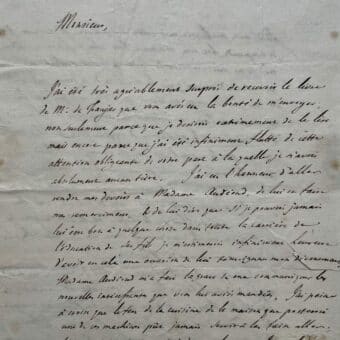 Monsieur,
J'ai été très agréablement surpris de recevoir le livre
de M. de que vous avés eu la bonté de m'envoyer,
non seulement parce que je desirois extremement de le lire
mais encore parce que j'ai été infiniment flatté de cette
attention obligeante de votre part à la quelle je n'avois
absolument aucun titre. J'ai eu l'honneur d'aller
rendre mes devoirs à Madame de lui en faire
mes remercimens. & de lui dire que si je pouvois jamais
lui être bon à quelque chose dans toute la carrière de
l'éducation de son fils je m'estimerois infiniment heureux
d'avoir en cela une occasion de lui
Madame m'a fait la grace de me communiquer les
nouvelles que vous lui avés mandées. J'ai peine
à croire que le feu de la cuisine de la maison que
une de ces machines puisse jamais servir à les faire aller.